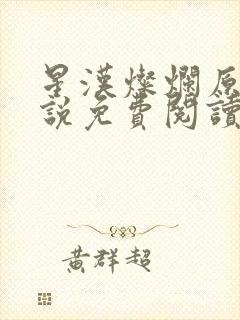 星漢燦爛原
說免費閱讀
黃群超